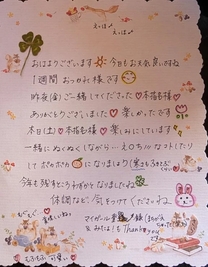 おはようございます 今日もお天気良いですね
1週間おつかれ様です
昨夜(金)ご一緒してくださった 本指名様
ありがとうございました 楽しかったです
本日(土)の本指名様 楽しみにしています
一緒にぬくぬくしながら…えのち なことしたり
して ポカポカ になりましょう
今年も残すところわずかとなりましたね
体調など気をつけてくださいね
もぐもぐ
美味しいね
もふもふ 可愛い
マイガール
Thank